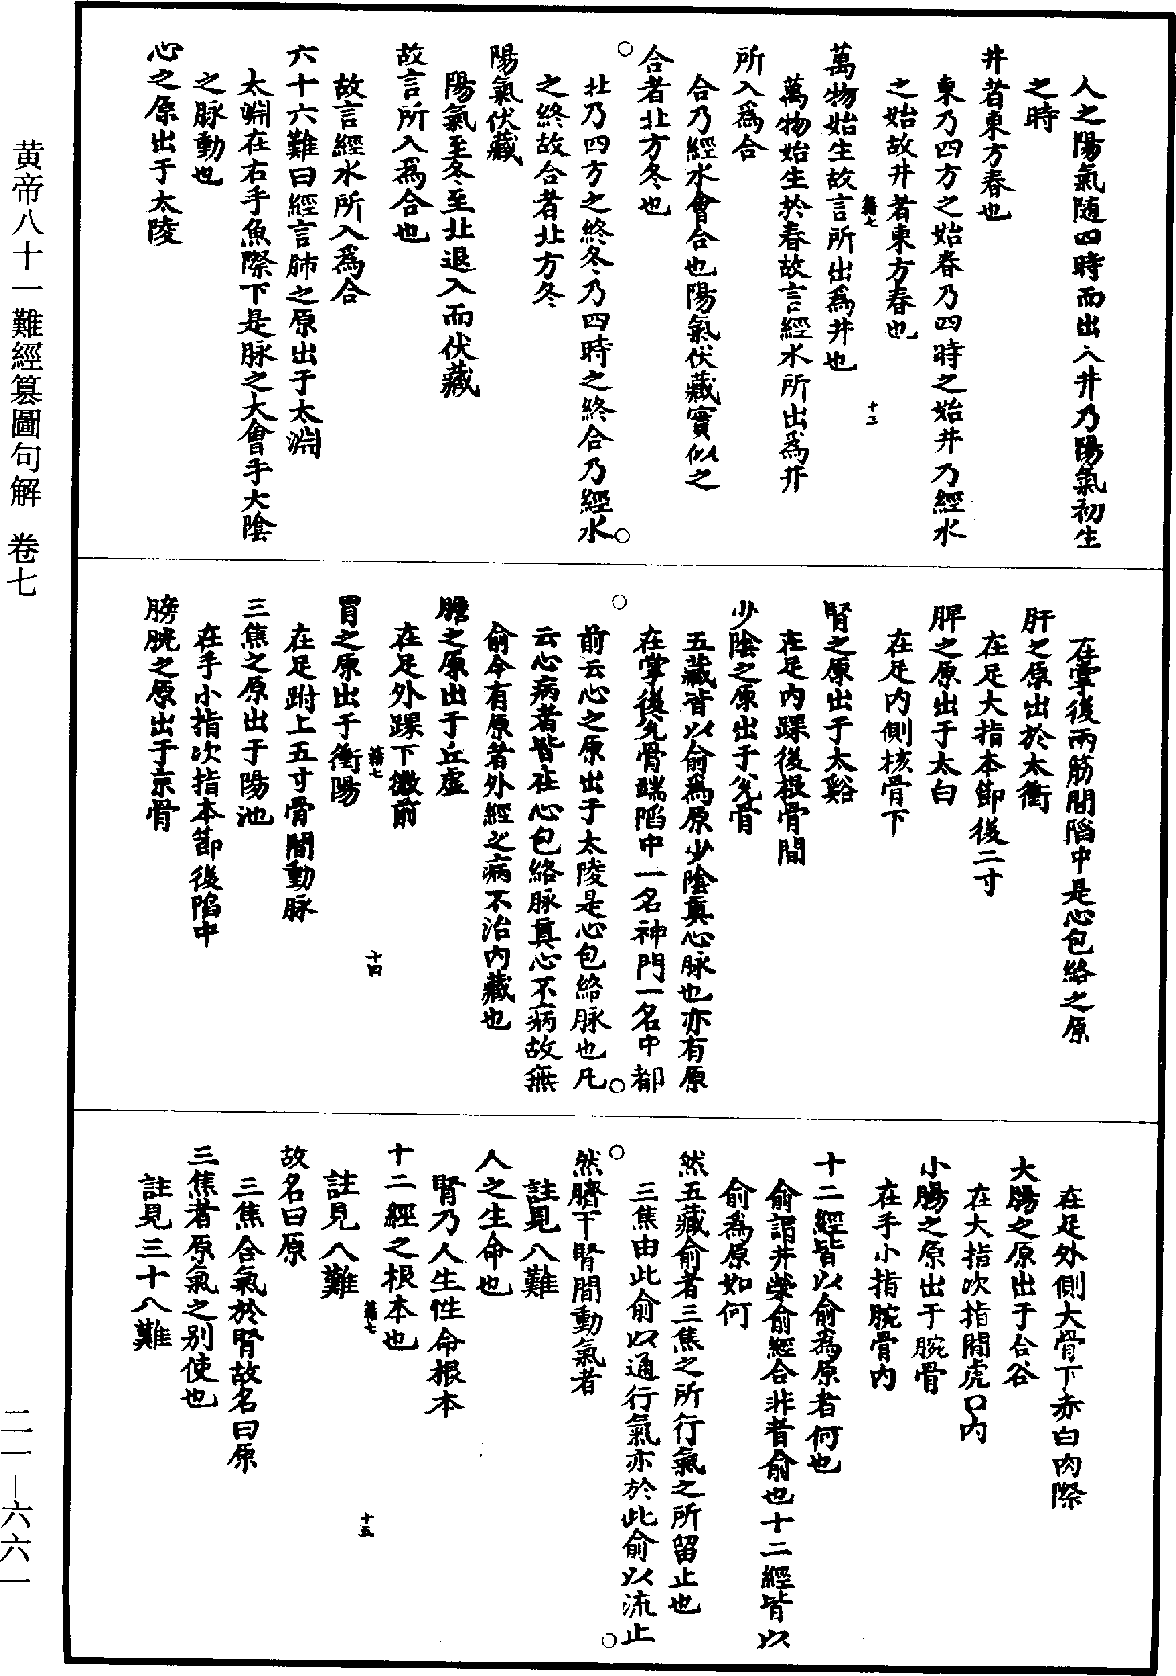 人之陽氣随四時而出入井乃陽氣初生
之時
井者東方春也
東乃四方之始春乃四時之始井乃經水
之始故井者東方春也
籍七
十三
萬物始生故言所出為井也
萬物始生於春故言經水所出為井
所入為合
合乃經水會合也陽氣伏藏實似之
合者北方冬也
北乃四方之終冬乃四時之終合乃經水
之終故合者北方冬
陽氣伏藏
陽氣至冬至北退入而伏藏
故言所入為合也
故言經水所入為合
六十六難曰經言肺之原出于太淵
太淵在右手魚際下是脉之大會手大陰
之脉動也
心之原出于太陵
在掌後兩筋間陷中是心包絡之原
肝之原出於太衝
在足大指本節後二寸
脾之原出于太白
在足内側核骨下
腎之原出于太谿
在足内踝後根骨間
少陰之原出于兌骨
五藏皆以俞為原少陰真心脉也亦有原
在掌後兌骨端陷中一名神門一名中都
前云心之原出于太陵是心包絡脉也凡
云心病者皆在心包絡脉真心不病故無
俞今有原者外經之病不治内藏也
膽之原出于丘虛
在足外踝下微前
籍七
十四
胃之原出于衝陽
在足跗上五寸骨間動脉
三焦之原出于陽池
在手小指次指本節後陷中
膀胱之原出于京骨
在足外側大骨下赤白肉際
大腸之原出于合谷
在大指次指間虎口内
小腸之原出于腕骨
在手小指腕骨内
十二經皆以俞為原者何也
俞謂井滎俞經合非者俞也十二經皆以
俞為原如何
然五藏俞者三焦之所行氣之所留止也
三焦由此俞以通行氣亦於此俞以流止
然臍下腎間動氣者
註見八難
人之生命也
腎乃人生性命根本
十二經之根本也
註見八難
籍七
十五
故名曰原
三焦合氣於腎故名曰原
三焦者原氣之别使也
註見三十八難
黄帝八十一難經篡圖句解 卷七
二一—六六一